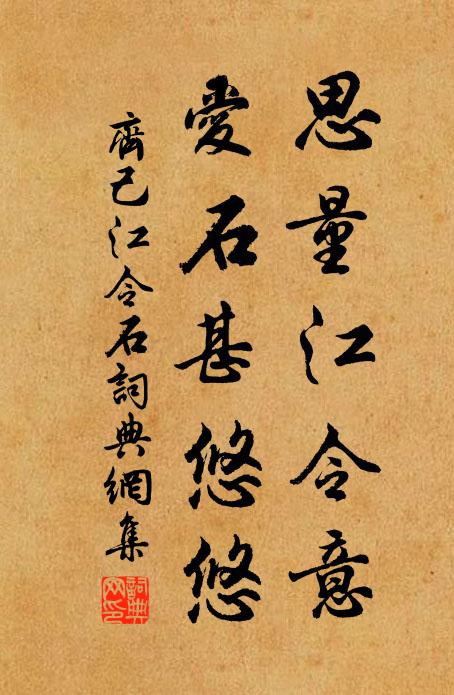 思量江令意
愛石甚悠悠
齊己江令石詞典網集
詞典網印